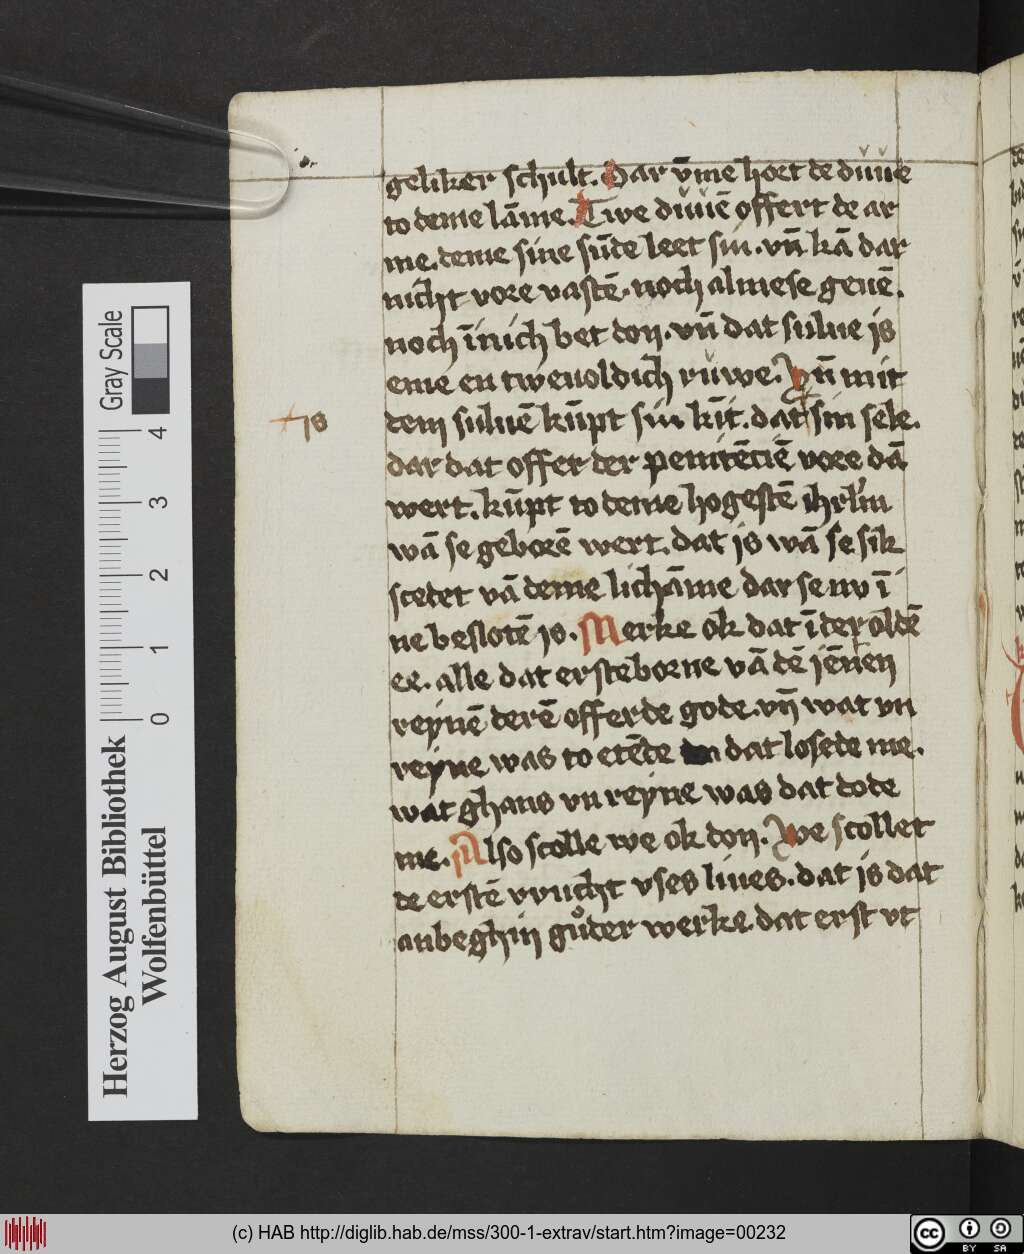 geliker schult. Dar v̄me hoet de duuͮe
to deme lāme. Twe duuͮē offert de ar
me. deme sine sūde leet sin. vn̄ kā dar
nicht vore vastē. noch almese geuē.
noch īnich bet don. vn̄ dat sulue is
eme en tweuoldich ruͮwe. Vn̄ mit
dem suluē kūpt sin kīt. dat sin sele.
is
dar dat offer der penitēciē vore dā
wert. kūpt to deme hogestē ihrl̄m
wā se geborē wert. dat is wā se sik
scedet vā deme lichāme dar se nv ī
ne beslotē is. Merke ok dat ī der oldē
ee. alle dat ersteborne vā dē jēnen
reynē derē offerde gode. vn̄ wat vn
reyne was to etēde dat losede me.
wat ghans vn reyne was dat dode
me. Also scolle we ok don. We scollet
de erstē vrucht vses liues. dat is dat
anbeghin guͦder werke. dat erst vt
Gray Scale
0 1 2 3 4
Herzog August Bibliothek
Wolfenbüttel
(c) HAB http://diglib.hab.de/mss/300-1-extrav/start.htm?image=00232
cc BY SA